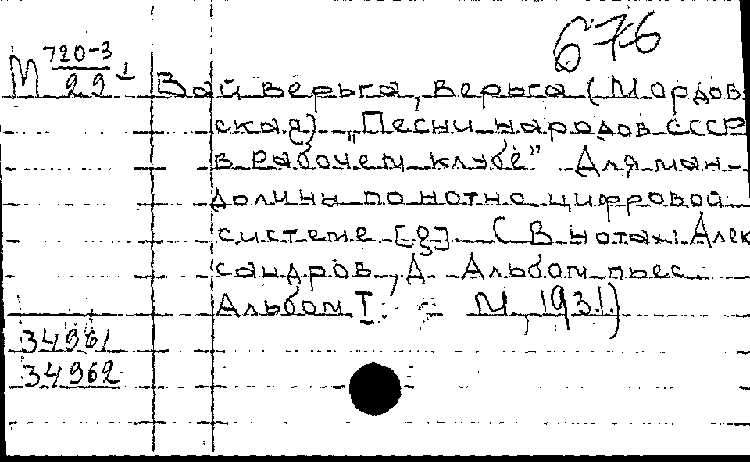 676
М 720-3
99 1
Вай верьга, верьга (Мордов
ская) „Песни народов СССР
в рабочем клубе" Для ман-
долины по нотно цифровой
системе [8] (В нотах: Алек
сандров, А Альбом пьес.
Альбом I. - М, 1931.)
34961
34962